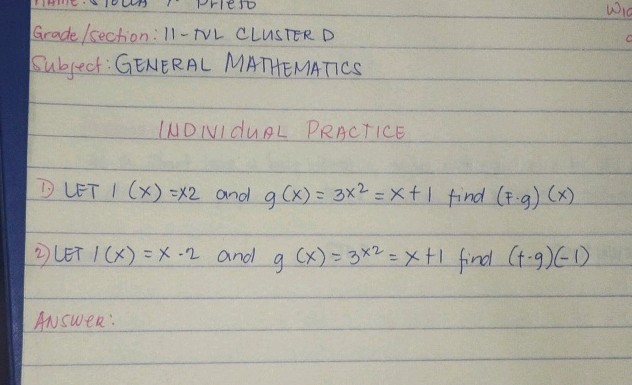 Grade/section: 11-TVL CLUSTER D
Subject: GENERAL MATHEMATICS
INDIVIDUAL PRACTICE
1.) LET I (X) =X2 and g (X) = 3X² = X+1 find (F.g) (X)
2) LET I (X) = X-2 and g (X) = 3X² = X+1 find (f-g)(-1)
ANSWER: